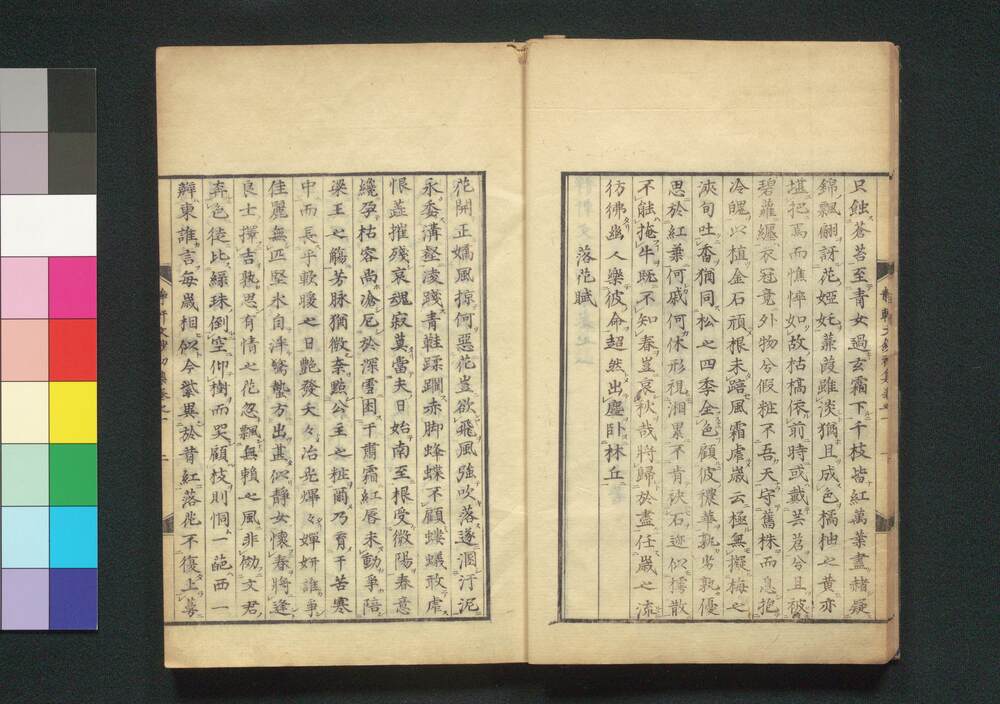 只蝕蒼苔至青女過玄霜下千枝皆紅萬葉盡赭疑
錦飄翩訝花婭奼蒹葭雖淡猶且成色橘柚之黄亦
堪把焉而憔悴如故枯槁依前時或戴芸苕兮且被
碧蘿纒衣冠竟外物兮假粧不吾天守舊株而息抱
冷魄以植金石頑根未踣風霜虐嚴云極無擬梅之
浹旬吐香猶同松之四季全色顧彼穠華孰劣孰優
思於紅葉何戚何休形視湘累不肯決石迹似樗散
不能掩牛既不知春豈哀秋哉將歸於盡任嚴之流
彷彿幽人樂彼命超然出塵卧林丘
落花賦
花開正嬌風掠何惡花豈欲飛風強吹落遂溷汙泥
永委溝壑凌踐青鞋蹂躙赤脚蜂蝶不顧螻蟻敢虐
恨蕋摧殘哀魂寂莫當夫日始南至根受微陽春意
纔孕枯容尚滄厄於深雪困于肅霜紅唇未動爭陪
梁王之觴芳脉猶微奈點公主之粧爾乃育于苦寒
中而長乎軟暖之日艶發夭々冶光燁々嬋妍誰爭
佳麗無匹堅氷自泮驚蟄方出甚似靜女懷春將逢
良士擇吉孰思有情之花忽飄無賴之風非効文君
奔色徒比緑珠倒空仰樹而哭顧枝則恫一葩西一
辧東誰言每歳相似今紫異於昔紅落花不復上蕚